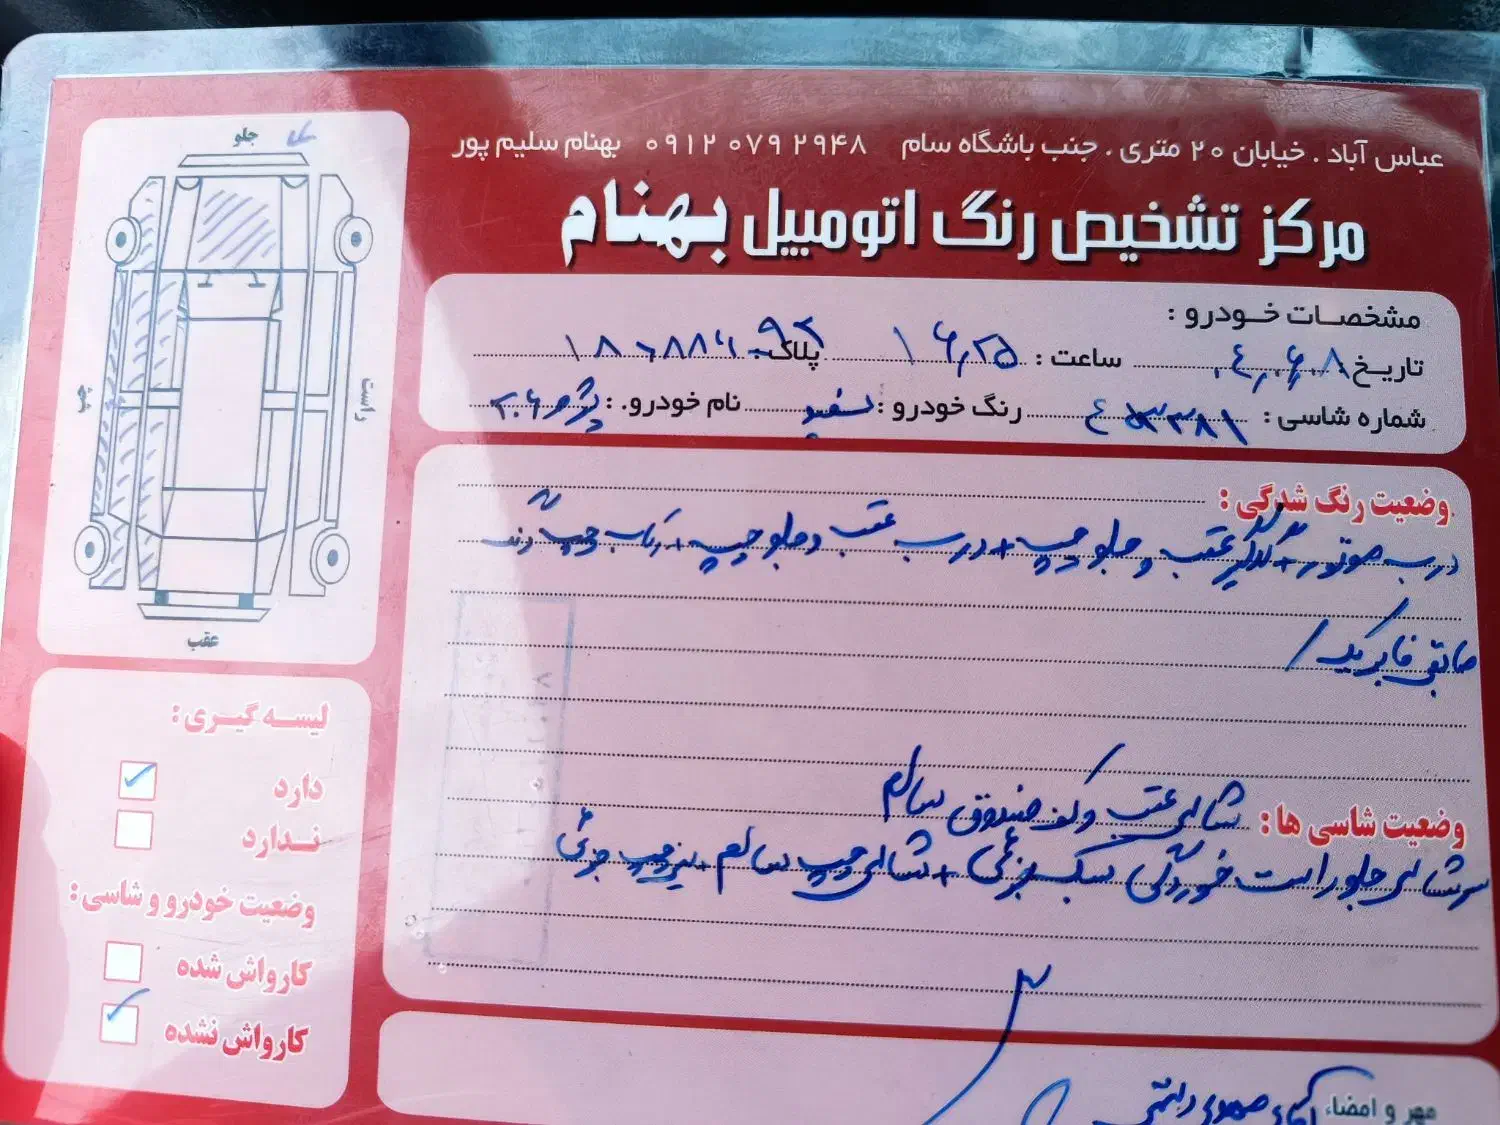 عباس آباد . خیابان ۲۰ متری . جنب باشگاه سام ۰۹۱۲ ۰۷۹ ۲۹۴۸ بهنام سلیم پور
مرکز تشخیص رنگ اتومبیل بهنام
مشخصات خودرو :
تاریخ: ۰۴,۰۶,۰۸ ساعت : ۱۶,۲۵ پلاک:
شماره شاسی : رنگ خودرو : سفید نام خودرو : پژو ۲۰۶
وضعیت رنگ شدگی :
درب موتور + گلگیر عقب و جلو چپ + درب عقب و جلو چپ + رکاب چپ رنگ
مابقی فابریک /
وضعیت شاسی ها : شاسی عقب و کف صندوق سالم
سرشاسی جلو راست خوردگی سبک جزئی + شاسی چپ سالم چپ جزئی
مهر و امضاء آقای
جلو
چپ
راست
عقب
لیسه گیری :
دارد ✓
ندارد
وضعیت خودرو و شاسی :
کارواش شده
کارواش نشده ✓